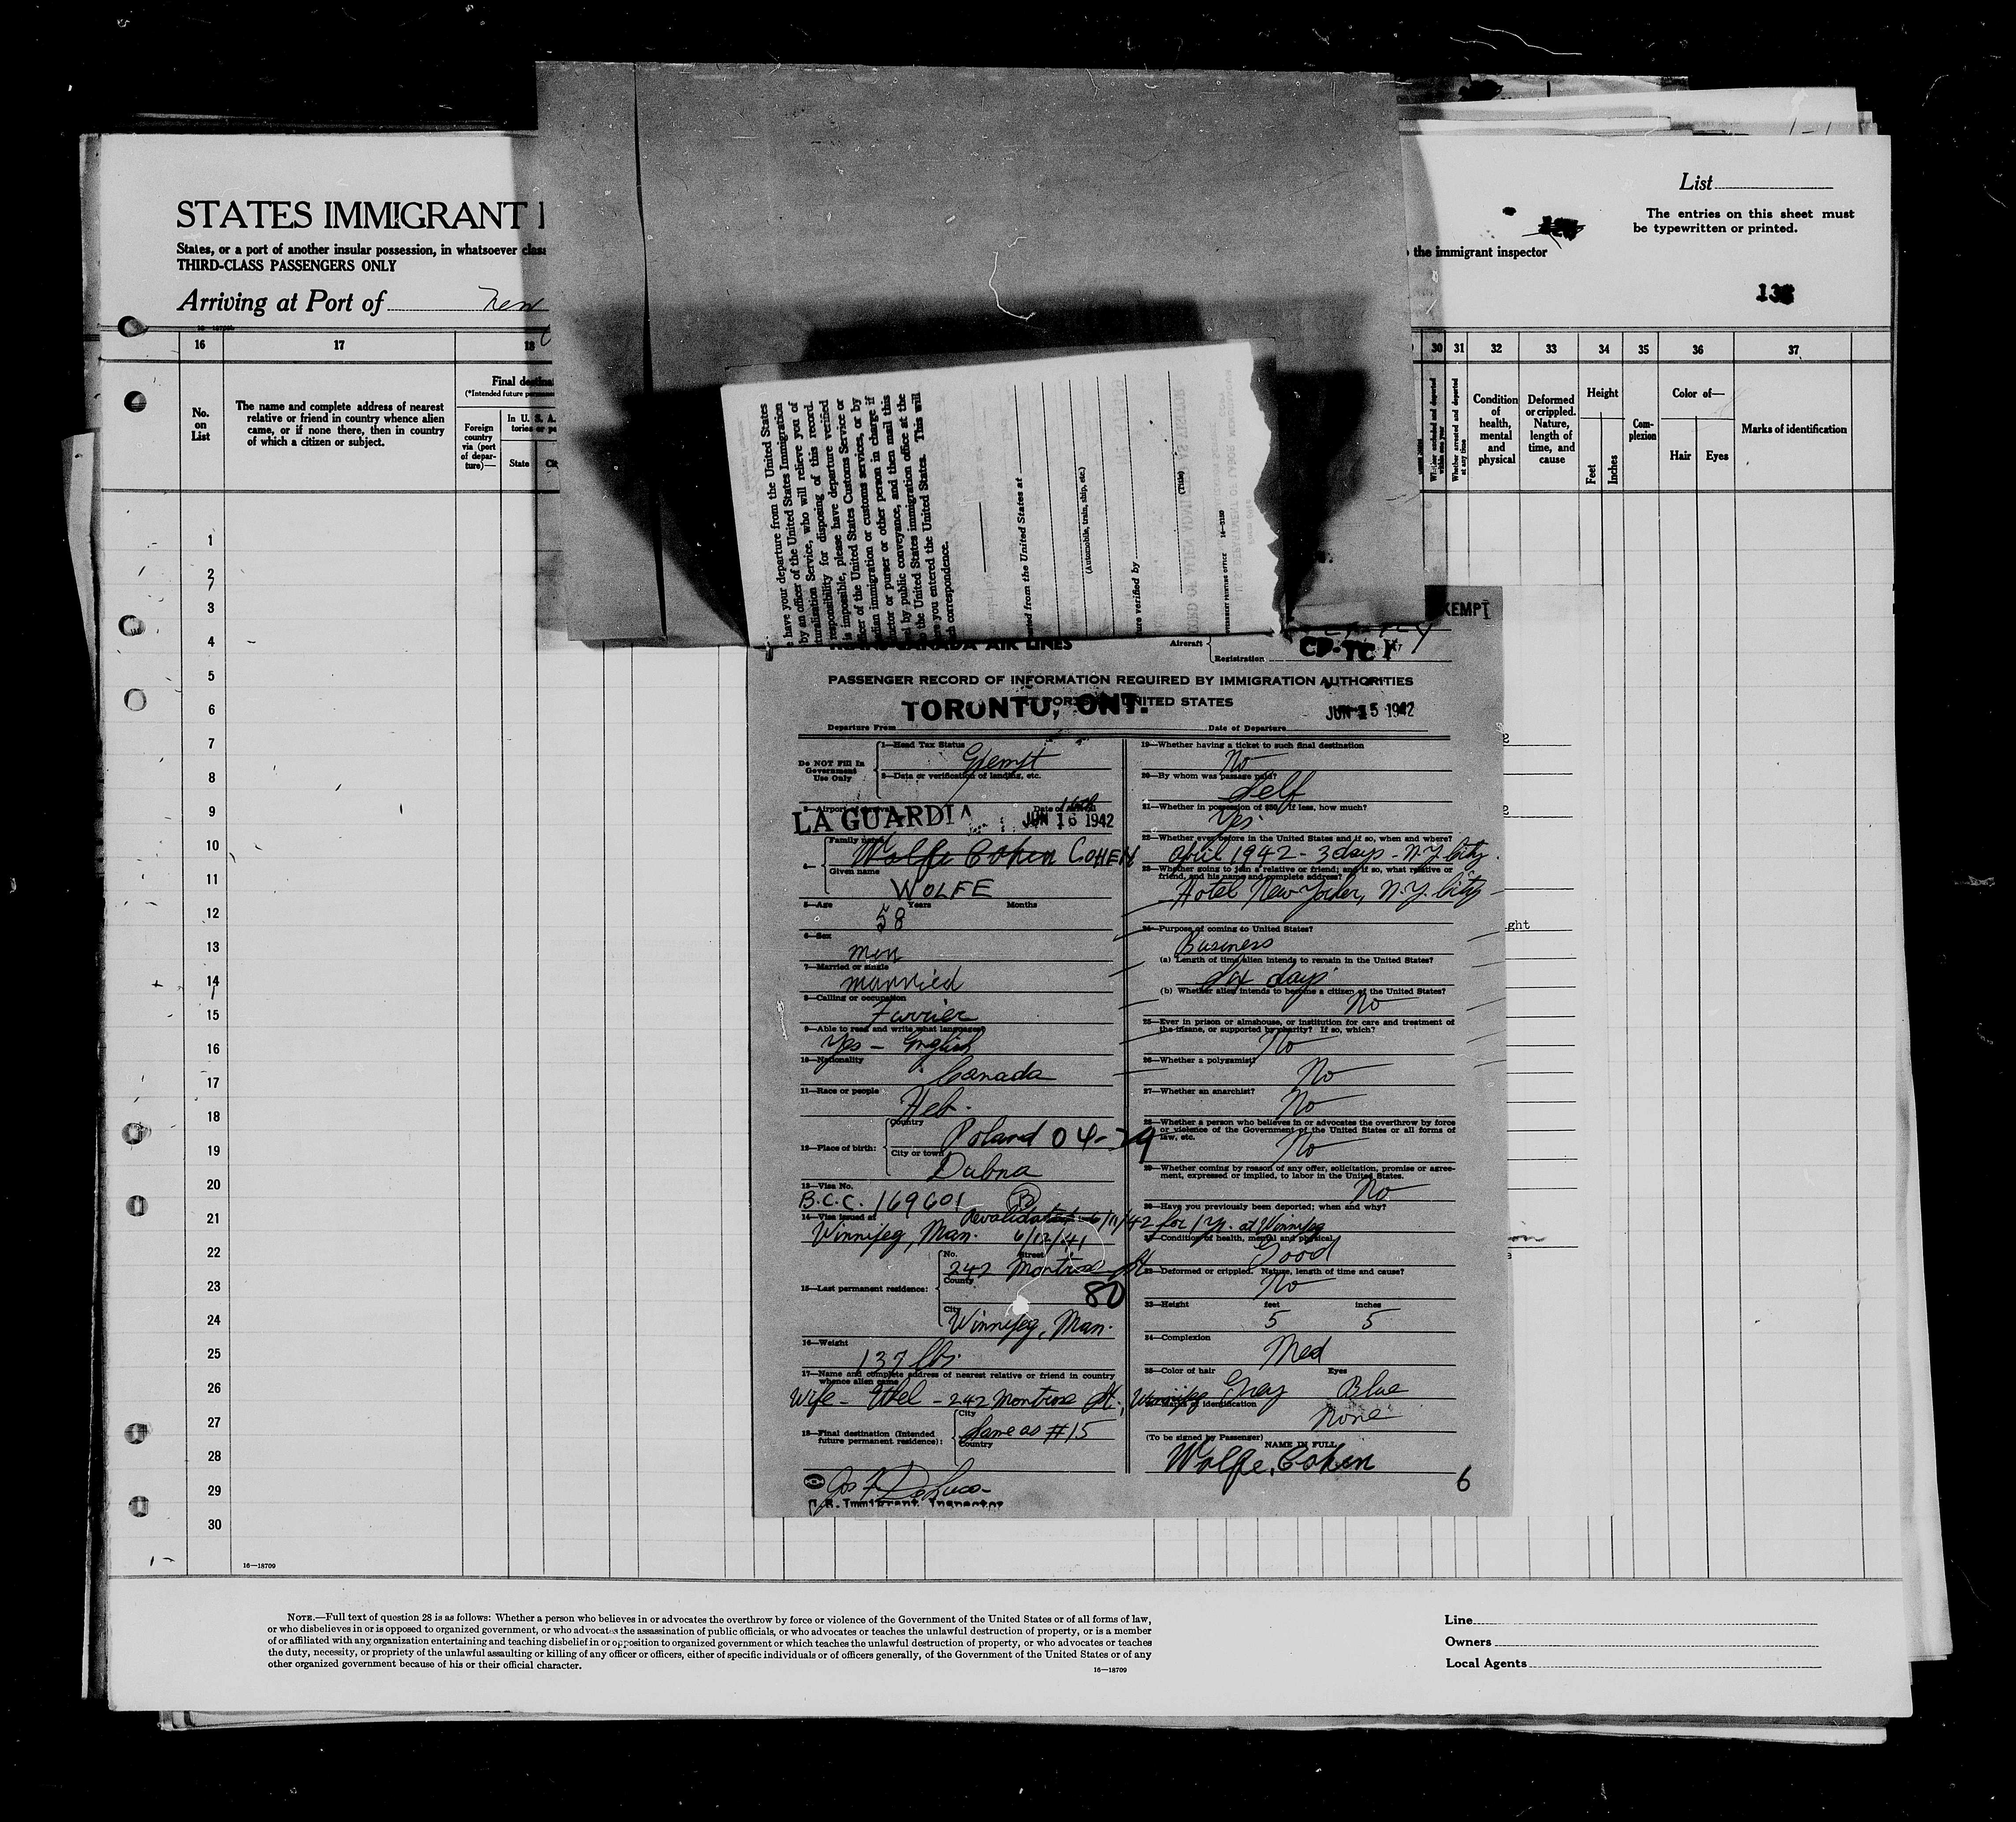 STATES IMMIGRANT
States, or a port of another insular possession, in whatsoever class
THIRD-CLASS PASSENGERS ONLY
Arriving at Port of New
the immigrant inspector
List
The entries on this sheet must
be typewritten or printed.
16 17 18
30 31 32 33 34 35 36 37
No.
on
List
The name and complete address of nearest
relative or friend in country whence alien
came, or if none there, then in country
of which a citizen or subject.
Final
(*Intended future
Foreign
country
via (port
of depar-
ture)—
In U. S. A.
State
Whether excluded and deported
within one year
Whether arrested and deported
at any time
Condition
of
health,
mental
and
physical
Deformed
or crippled.
Nature,
length of
time, and
cause
Height
Feet
Inches
Com-
plexion
Color of—
Hair
Eyes
Marks of identification
1
2
3
4
5
6
7
8
9
10
11
12
13
14
15
16
17
18
19
20
21
22
23
24
25
26
27
28
29
30
16—18709
have your departure from the United States
by an officer of the United States Immigration
turalization Service, who will relieve you of
responsibility for disposing of this record.
is impossible, please have departure verified
ficer of the United States Customs Service or
dian immigration or customs services, or by
uctor or purser or other person in charge if
d by public conveyance, and then mail this
o the United States immigration office at the
re you entered the United States. This will
h correspondence.
rted from the United States at
(Automobile, train, ship, etc.)
ure verified by
(Title)
CANADA AIR LINES
Aircraft
Registration
CF-TC
PASSENGER RECORD OF INFORMATION REQUIRED BY IMMIGRATION AUTHORITIES
UNITED STATES
TORONTO, ONT.
JUN 15 1942
Departure From
Date of Departure
Do NOT Fill In
Government
Use Only
1—Head Tax Status
Exempt
2—Data or verification of landing, etc.
3—Airport of arrival
LA GUARDIA
Date of
JUN 16 1942
4—
Family name
Wolfe Cohen COHEN
Given name
WOLFE
5—Age Years Months
58
6—Sex
men
7—Married or single
married
8—Calling or occupation
Furrier
9—Able to read and write what languages?
Yes – English
10—Nationality
Canada
11—Race or people
Heb.
12—Place of birth:
Country
Poland
City or town
Dubna
13—Visa No.
B.C.C. 169601 B
14—Visa issued at
Revalidated 6/11/42 for 1 yr. at Winnipeg
Winnipeg, Man. 6/12/41
15—Last permanent residence:
No. Street
242 Montrose St.
County
80
City
Winnipeg, Man.
16—Weight
137 lbs.
17—Name and complete address of nearest relative or friend in country
whence alien came
Wife – Ethel – 242 Montrose St., Winnipeg
18—Final destination (Intended
future permanent residence):
City
Same as #15
Country
U.S. Immigrant Inspector
19—Whether having a ticket to such final destination
No
20—By whom was passage paid?
Self
21—Whether in possession of $50. If less, how much?
Yes
22—Whether ever before in the United States and if so, when and where?
April 1942 – 3 days – N.Y. City.
23—Whether going to join a relative or friend; and if so, what relative or
friend, and his name and complete address?
Hotel New Yorker, N.Y. City
24—Purpose of coming to United States?
Business
(a) Length of time alien intends to remain in the United States?
Six days
(b) Whether alien intends to become a citizen of the United States?
No
25—Ever in prison or almshouse, or institution for care and treatment of
the insane, or supported by charity? If so, which?
No
26—Whether a polygamist?
No
27—Whether an anarchist?
No
28—Whether a person who believes in or advocates the overthrow by force
or violence of the Government of the United States or all forms of
law, etc.
No
29—Whether coming by reason of any offer, solicitation, promise or agree-
ment, expressed or implied, to labor in the United States.
No
30—Have you previously been deported; when and why?
31—Condition of health, mental and physical
Good
32—Deformed or crippled. Nature, length of time and cause?
No
33—Height feet inches
5 5
34—Complexion
Med
35—Color of hair Eyes
Grey Blue
36—Marks of identification
None
(To be signed by Passenger)
NAME IN FULL
Wolfe Cohen
6
NOTE.—Full text of question 28 is as follows: Whether a person who believes in or advocates the overthrow by force or violence of the Government of the United States or of all forms of law,
or who disbelieves in or is opposed to organized government, or who advocates the assassination of public officials, or who advocates or teaches the unlawful destruction of property, or is a member
of or affiliated with any organization entertaining and teaching disbelief in or opposition to organized government or which teaches the unlawful destruction of property, or who advocates or teaches
the duty, necessity, or propriety of the unlawful assaulting or killing of any officer or officers, either of specific individuals or of officers generally, of the Government of the United States or of any
other organized government because of his or their official character.
16—18709
Line
Owners
Local Agents